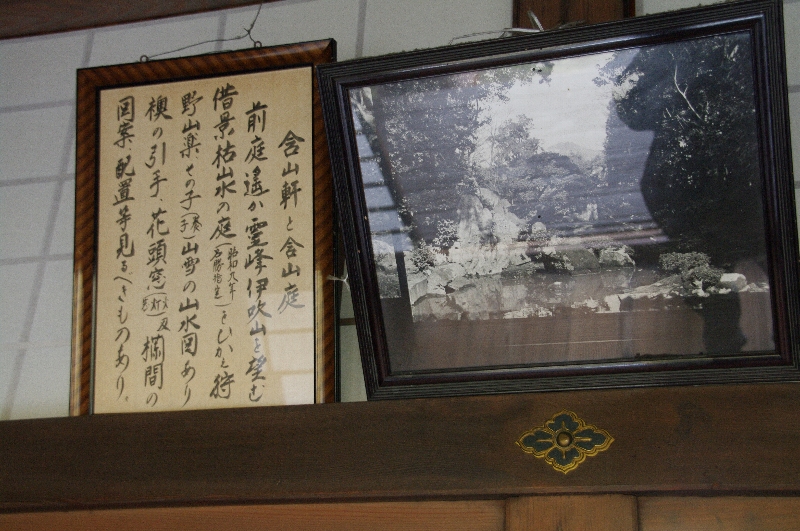 含山軒と含山庭
前庭遙か霊峰伊吹山を望む
借景枯山水の庭(昭和九年名勝指定)をひかえ狩
野山楽その子(養子)山雪の山水図あり
襖の引手、花頭窓(火灯窓)及欄間の
図案、配置等見るべきものあり。